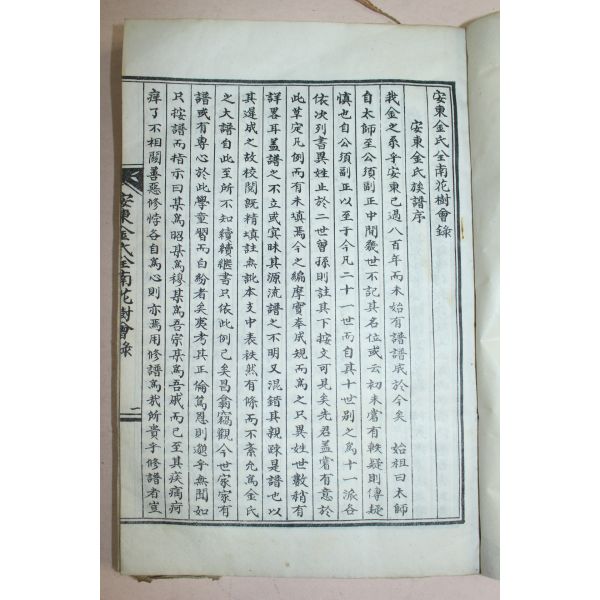 安東金氏全南花樹會錄
安東金氏族譜序
我金之系乎安東已過八百年而未始有譜譜成於今矣 始祖曰太師
自太師至公須副正中間幾世不記其名位或云初未嘗有軼疑則傳疑
慎也自公須副正以至于今凡二十一世而自其十世別之爲十一派各
依次列書異姓止於二世曾孫則註其下按文可見矣先君盖嘗有意於
此草定凡例而有未填焉今之編摩實奉成規而爲之只異姓世數稍有
詳畧耳盖譜之不立或寔昧其源流譜之不明又混錯其親踈是譜也以
其遲成之故校閱旣精填註無訛本支中表秩然有條而不紊允爲金氏
之大譜自此至所不知續續繼書只依此例已矣昌翕竊觀今世家家有
譜或有專心於此學童習而白紛者矣夷考其正倫篤恩則邈乎無聞如
只按譜而指示曰某爲昭某爲穆某爲吾宗某爲吾戚而已至其疾痛疴
痒了不相關善惡修悖各自爲心則亦焉用修譜爲哉所貴乎修譜者豈
安東金氏全南花樹會錄
二